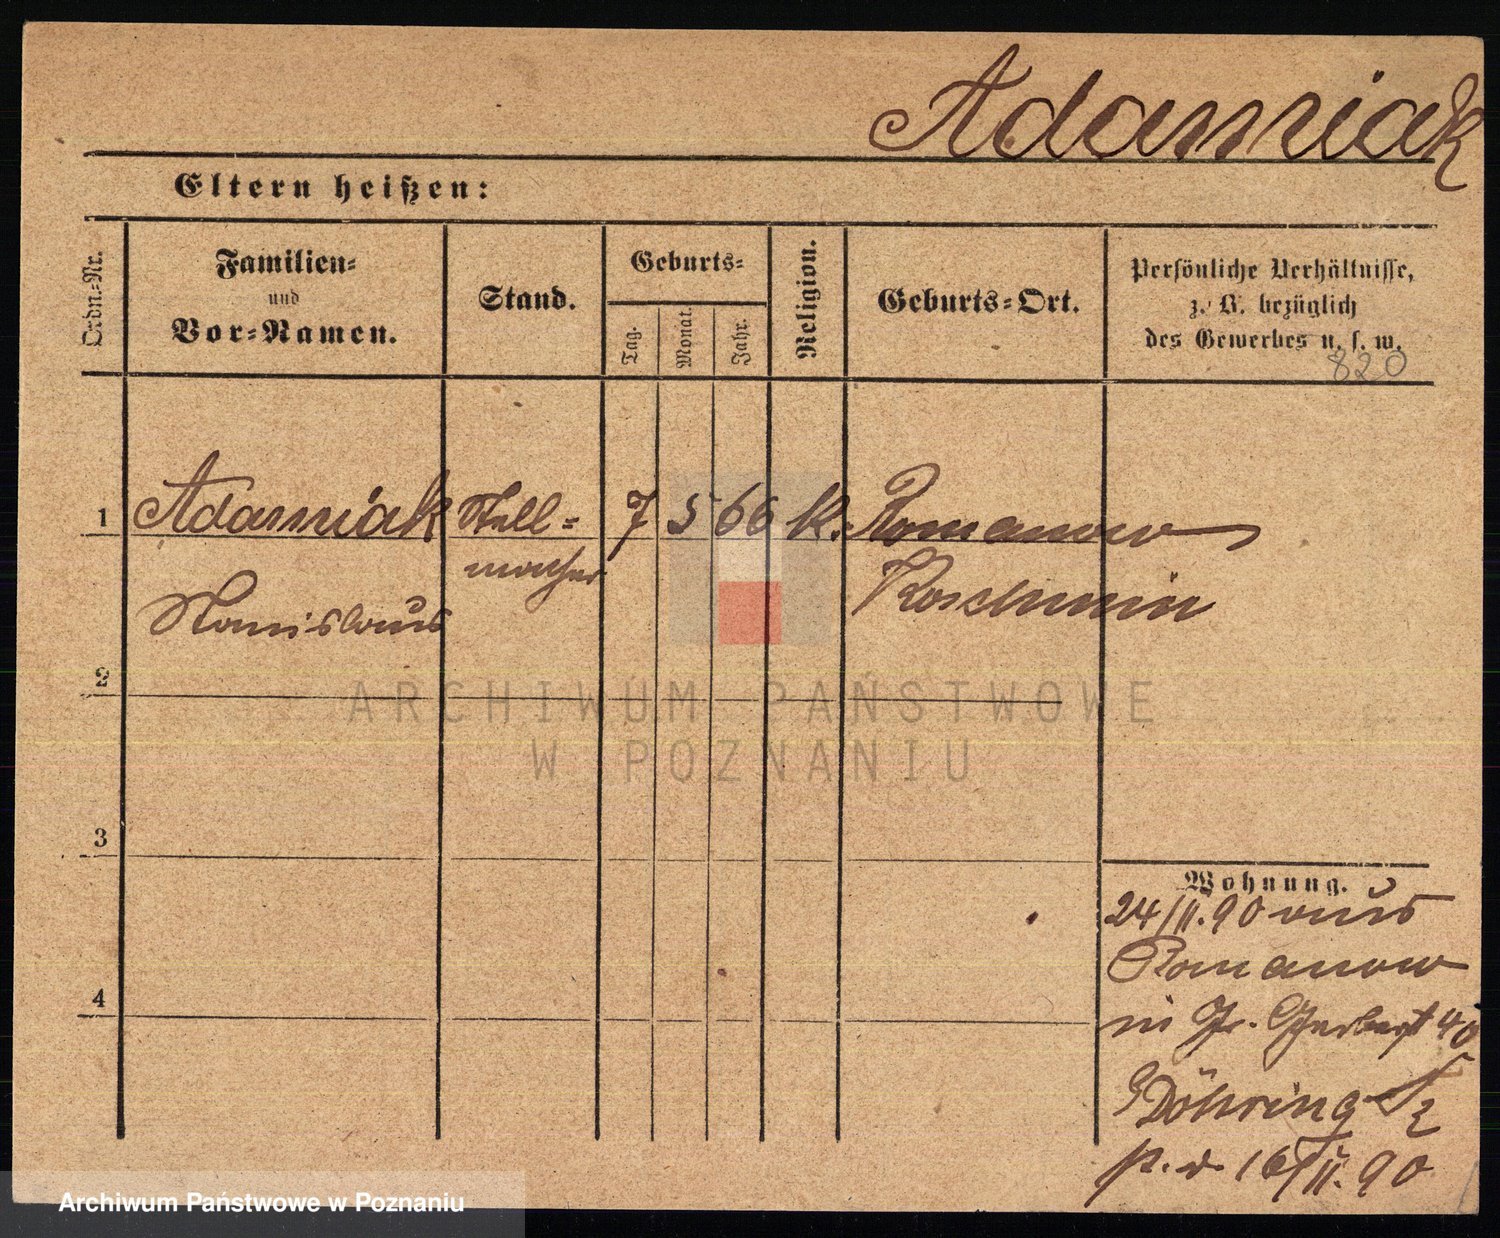 Adamniak
Eltern heißen:
Ordn.-Nr.
Familien-
und
Vor-Namen.
Stand.
Geburts-
Tag.
Monat.
Jahr.
Religion.
Geburts-Ort.
Persönliche Verhältnisse,
z. B. bezüglich
des Gewerbes u. s. w.
820
1
Adamniak
Stell-
macher
7
5
66
k.
Romanow
Koschmin
Stanislaus
2
3
4
Wohnung.
24/II.90 aus
Romanow
in Gr. Gerberst 40
Döhring
p. d. 16/II.90
ARCHIWUM PAŃSTWOWE
W POZNANIU
Archiwum Państwowe w Poznaniu